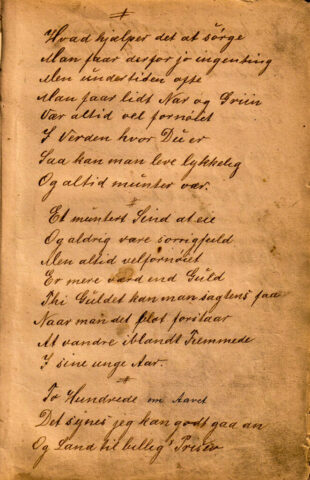 Hvad hjælper det at sörge
Man faar derfor jo ingenting
Men undertiden ofte
Man faar lidt Nar og Griin
Vær altid vel fornöiet
I Verden hvor Du er
Saa kan man leve lykkelig
Og altid munter vær.
Et muntert Sind at eie
Og aldrig være sorrigfuld
Men altid velfornöiet
Er mere værd end Guld
Thi Guldet kan man sagtens faa
Naar man det blot forstaar
At vandre iblandt Fremmede
I sine unge Aar.
To Hundrede om Aaret
Det synes jeg kan godt gaa an
Og Land til billig Priser